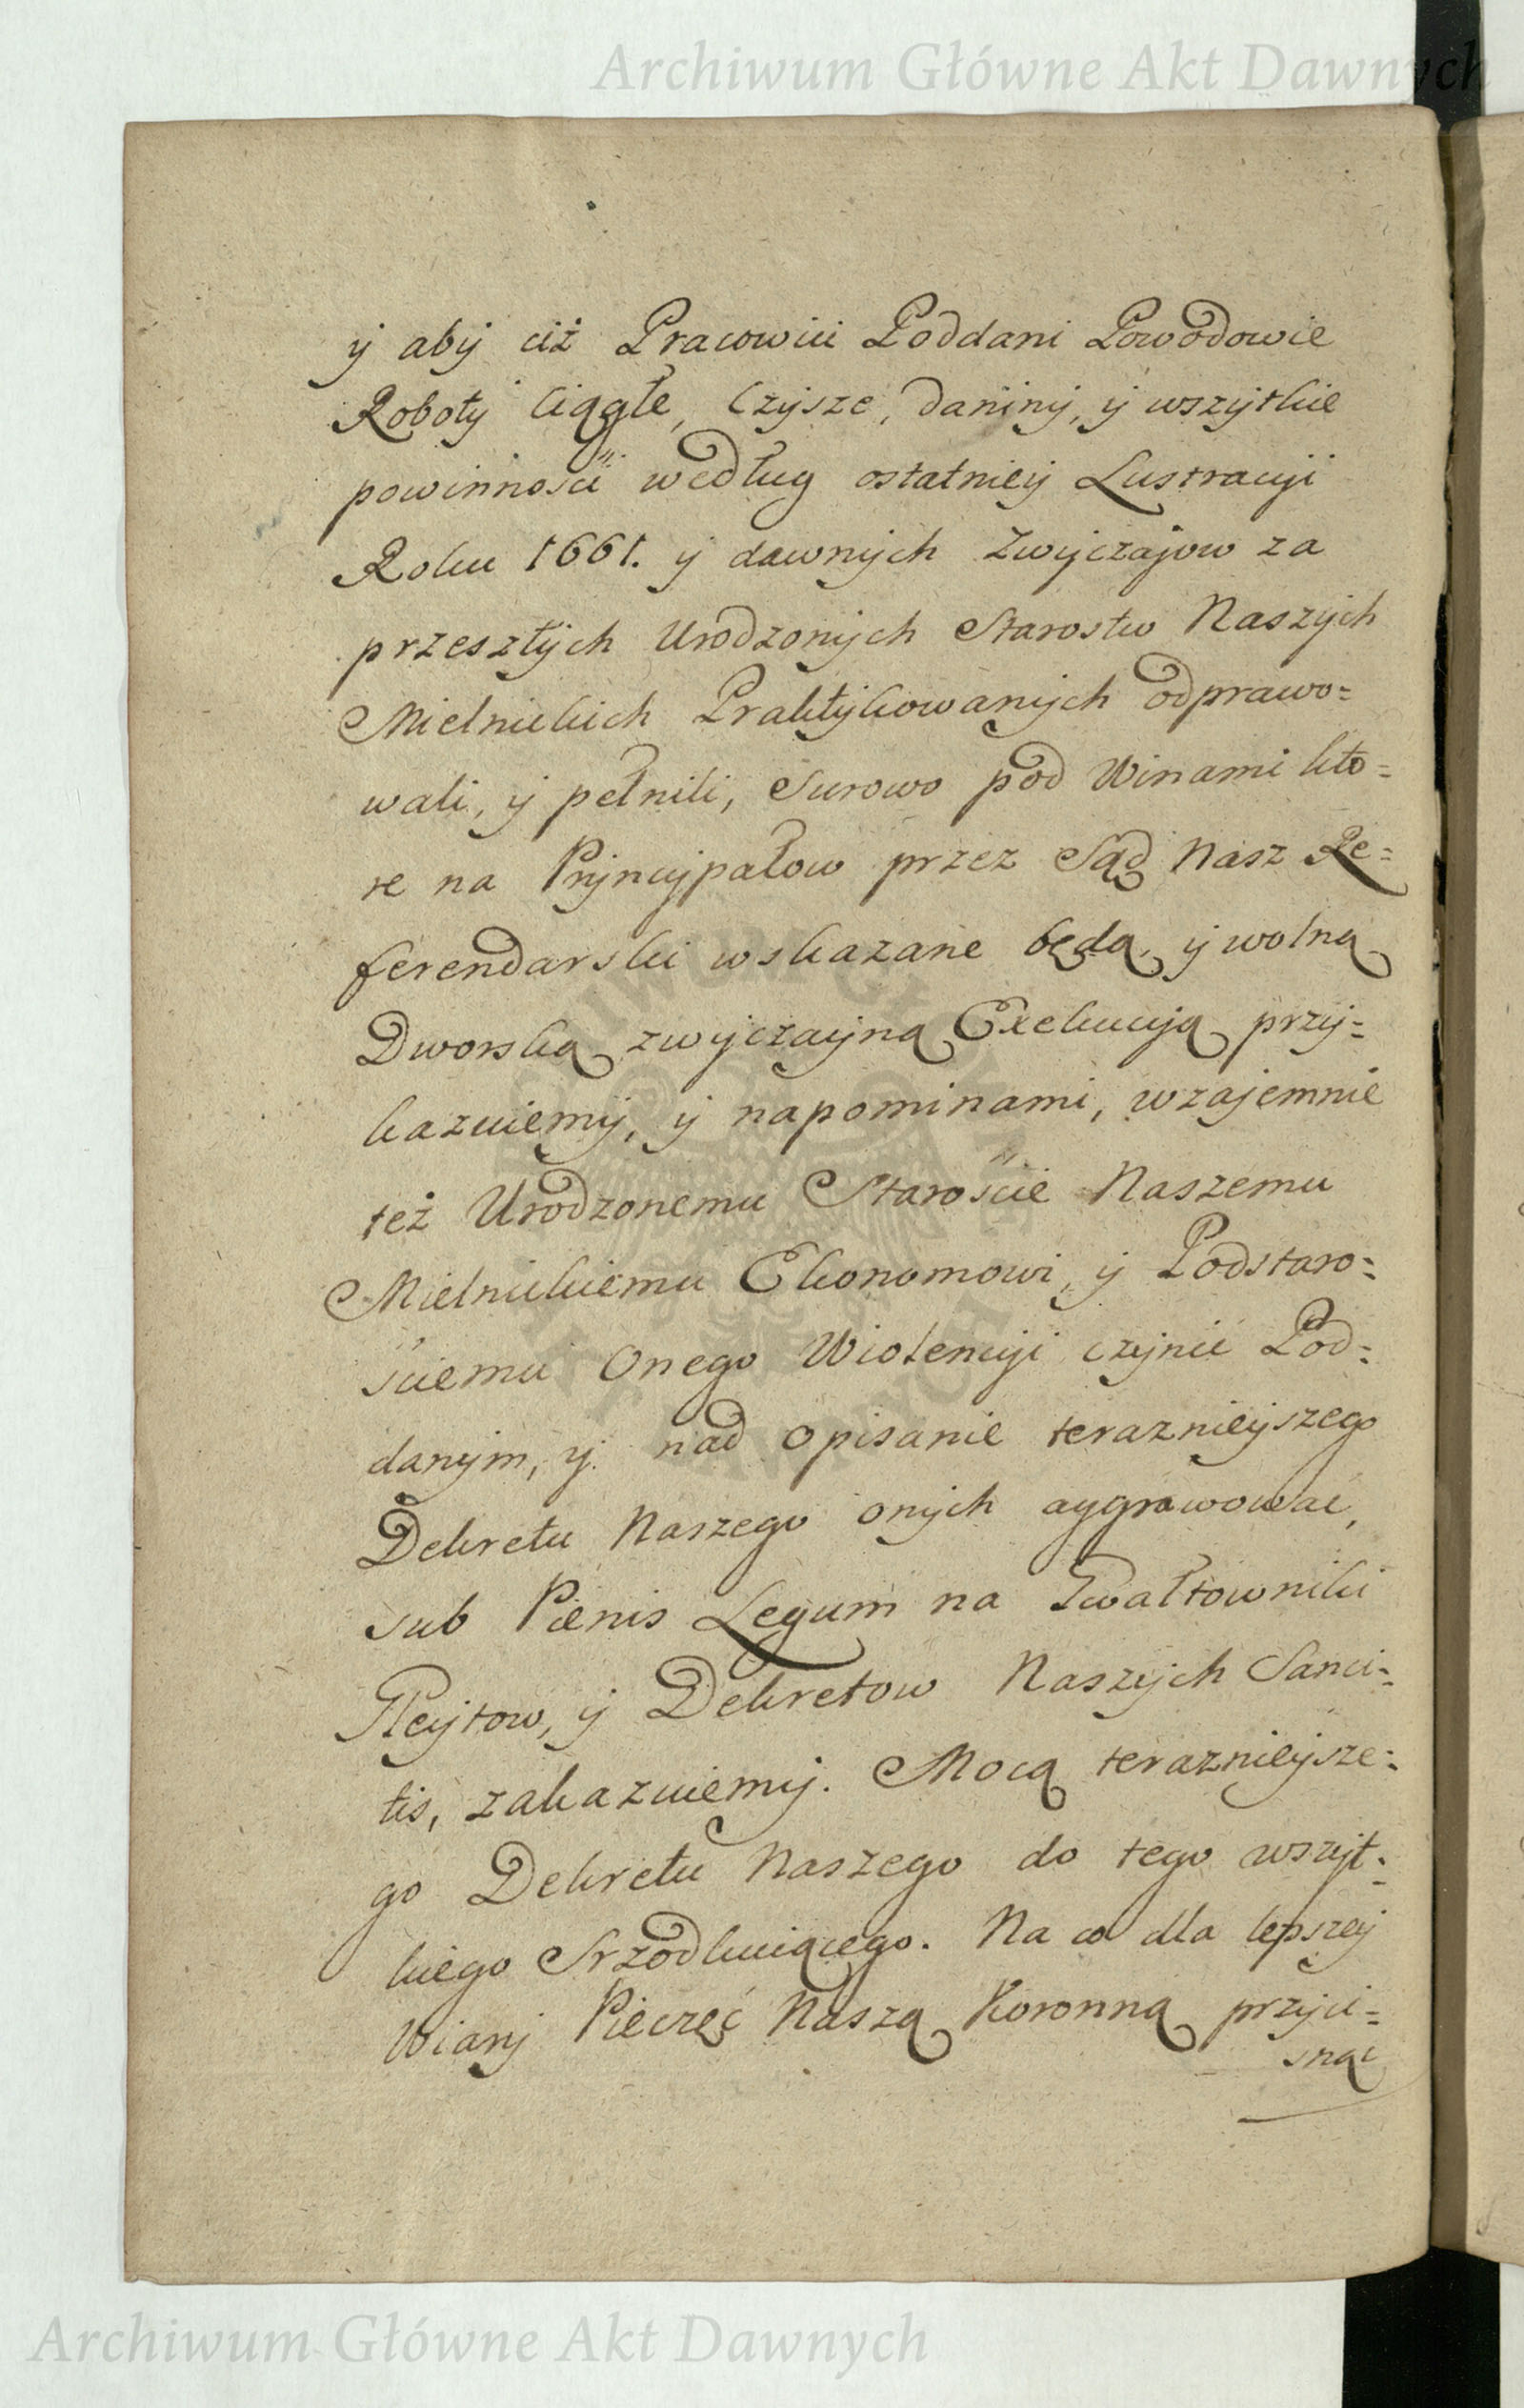 Archiwum Główne Akt Dawnych
y aby ciż Pracowici Poddani Powodowie
Roboty Ciągłe, Czysze, daniny, y wszytkie
powinności według ostatniey Lustracyi
Roku 1661. y dawnych Zwyczajow za
przeszłych Urodzonych Starostw Naszych
Mielnickich Praktykowanych odprawo=
wali, y pełnili, Surowo pod Winami kto=
re na Pryncypałow przez Sąd Nasz Re=
ferendarski wskazane będą, y wolną
Dworską zwyczayną Exekucyą przy=
kazuiemy, y napominami, wzajemnie
też Urodzonemu Staroście Naszemu
Mielnickiemu Ekonomowi, y Podstaro=
ściemu Onego Wiolencyi czynić Pod=
danym, y nad opisanie teraznieyszego
Dekretu Naszego onych aggrawować,
sub Pœnis Legum na Gwałtowniki
Gleytow, y Dekretow Naszych Sanci=
tis, zakazuiemy. Mocą teraznieysze=
go Dekretu Naszego do tego wszyt=
kiego Srzodkuiącego. Na co dla lepszey
Wiary Pieczęć Naszą Koronną przyci=
snąć
Archiwum Główne Akt Dawnych